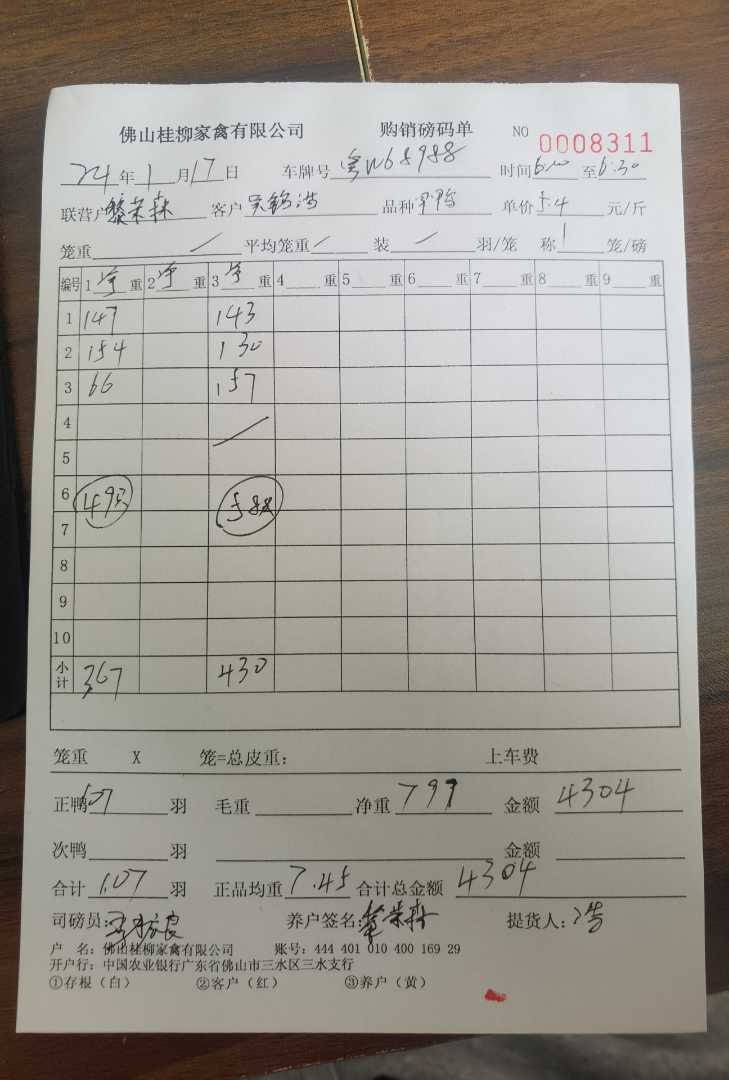 佛山桂柳家禽有限公司 购销磅码单 NO 0008311
24年1月17日 车牌号粤W68988 时间6:10至6:30
联营户黎荣森 客户 品种 单价5.4元/斤
笼重/ 平均笼重/ 装/羽/笼 称1笼/磅
编号 1 重 2 重 3 重 4 重 5 重 6 重 7 重 8 重 9 重
1 147 143
2 154 130
3 66 157
4 /
5
6 493
7
8
9
10
小计 367 430
笼重 X 笼=总皮重: 上车费
正鸭107羽 毛重 净重797 金额4304
次鸭 羽 金额
合计107羽 正品均重7.45 合计总金额4304
司磅员: 养户签名:黎荣森 提货人:
户 名:佛山桂柳家禽有限公司 账号:444 401 010 400 169 29
开户行:中国农业银行广东省佛山市三水区三水支行
①存根(白) ②客户(红) ③养户(黄)